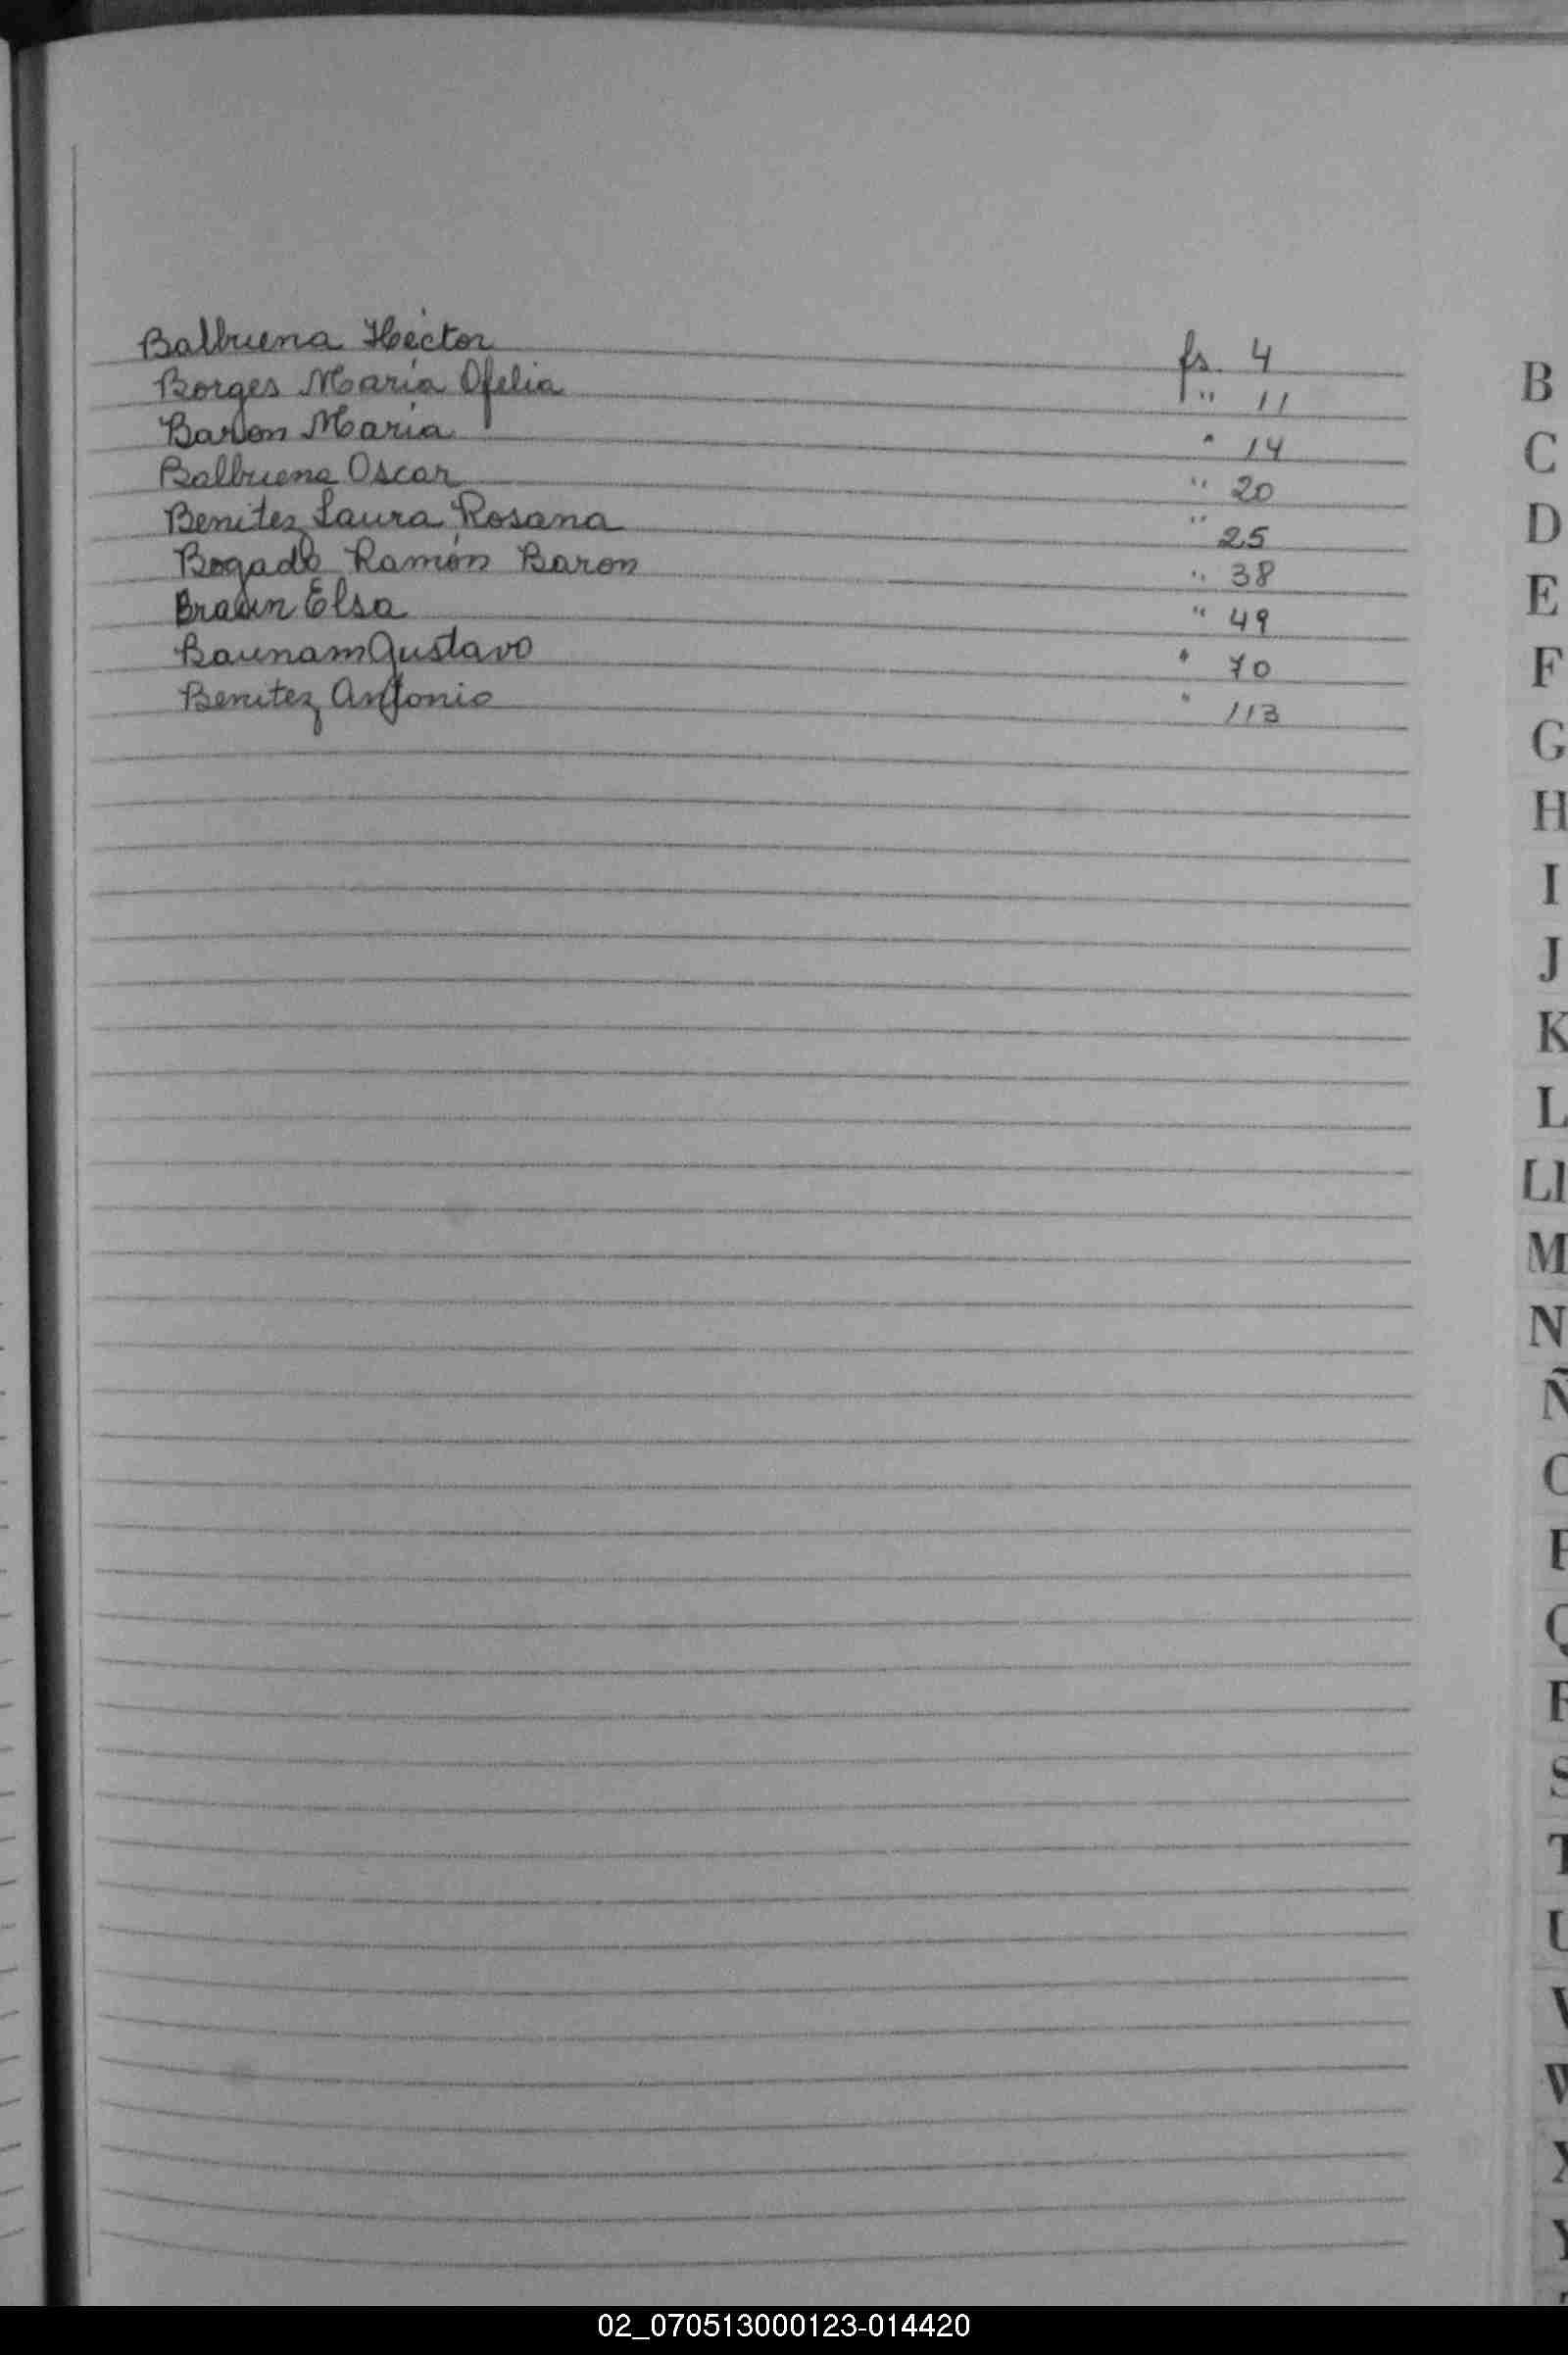 Balbuena Héctor fs. 4
Borges María Ofelia " 11
Baron María " 14
Balbuena Oscar " 20
Benitez Laura Rosana " 25
Bogado Ramón Baron " 38
Braun Elsa " 49
Baunam Gustavo " 70
Benitez Antonio " 113
B
C
D
E
F
G
H
I
J
K
L
Ll
M
N
Ñ
O
P
Q
R
S
T
U
V
W
X
Y
02_070513000123-014420